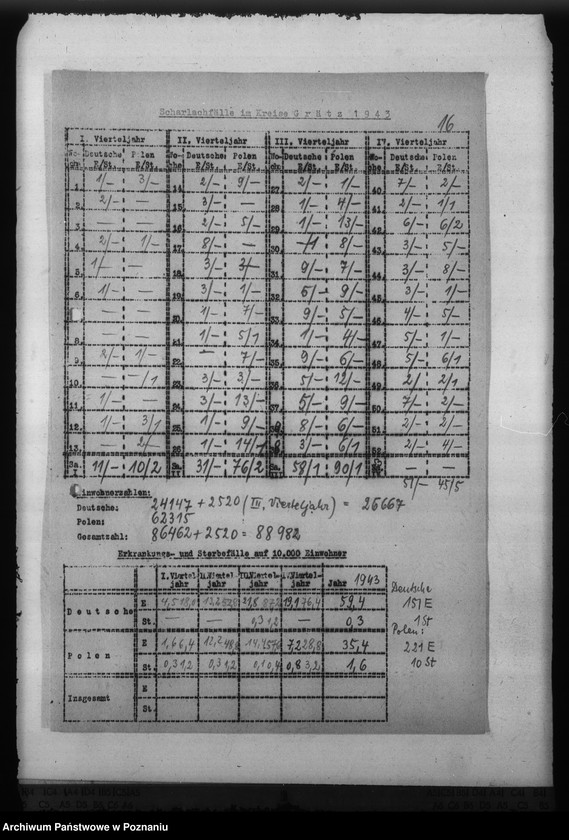 Scharlachfälle im Kreise Grätz 1943
16
I. Vierteljahr II. Vierteljahr III. Vierteljahr IV. Vierteljahr
Wo- Deutsche Polen Wo- Deutsche Polen Wo- Deutsche Polen Wo- Deutsche Polen
che E/St. E/St. che E/St. E/St. che E/St. E/St. che E/St. E/St.
1. 1/— 3/— 14. 2/— 9/— 27. 2/— 1/— 40. 7/— 2/—
2. 2/— — 15. 3/— — 28. 1/— 4/— 41. 2/— 1/1
3. — — 16. 2/— 5/— 29. 1/— 13/— 42. 6/— 6/2
4. 2/— 1/— 17. 8/— — 30. —/1 8/— 43. 3/— 5/—
5. 1/— — 18. 3/— 3/— 31. 9/— 7/— 44. 3/— 8/—
6. 1/— — 19. 3/— 1/— 32. 5/— 9/— 45. 3/— 1/—
— — 20. 1/— 7/— 33. 9/— 5/— 46. 4/— 5/—
— — 21. 1/— 5/1 34. 1/— 4/— 47. 5/— 1/—
9. 2/— 1/— 22. — 7/— 35. 9/— 6/— 48. 5/— 6/1
10. — —/1 23. 3/— 3/— 36. 5/— 12/— 49. 2/— 2/1
11. 1/— — 24. 3/— 13/— 37. 5/— 9/— 50. 7/— 2/—
12. 1/— 3/1 25. 1/— 9/— 38. 8/— 6/— 51. 2/— 2/—
13. — 2/— 26. 1/— 14/1 39. 3/— 6/1 52. 2/— 4/—
Sa. I 11/— 10/2 Sa. II 31/— 76/2 Sa. III 58/1 90/1
51/— 45/5
Einwohnerzahlen:
Deutsche: 24147 + 2520 (III. Vierteljahr) = 26667
Polen: 62315
Gesamtzahl: 86462 + 2520 = 88982
Erkrankungs- und Sterbefälle auf 10.000 Einwohner
I. Viertel- II. Viertel- III. Viertel- IV. Viertel- Jahr 1943
jahr jahr jahr jahr
Deutsche E 19,1 76,4 59,4
St. — — 0,3 1,2 — 0,3
Polen E 1,6 6,4 12,2 48,8 7,2 28,8 35,4
St. 0,3 1,2 0,3 1,2 0,1 0,4 0,8 3,2 1,6
Insgesamt E
St.
Deutsche
151 E
1 St
Polen:
221 E
10 St
Archiwum Państwowe w Poznaniu